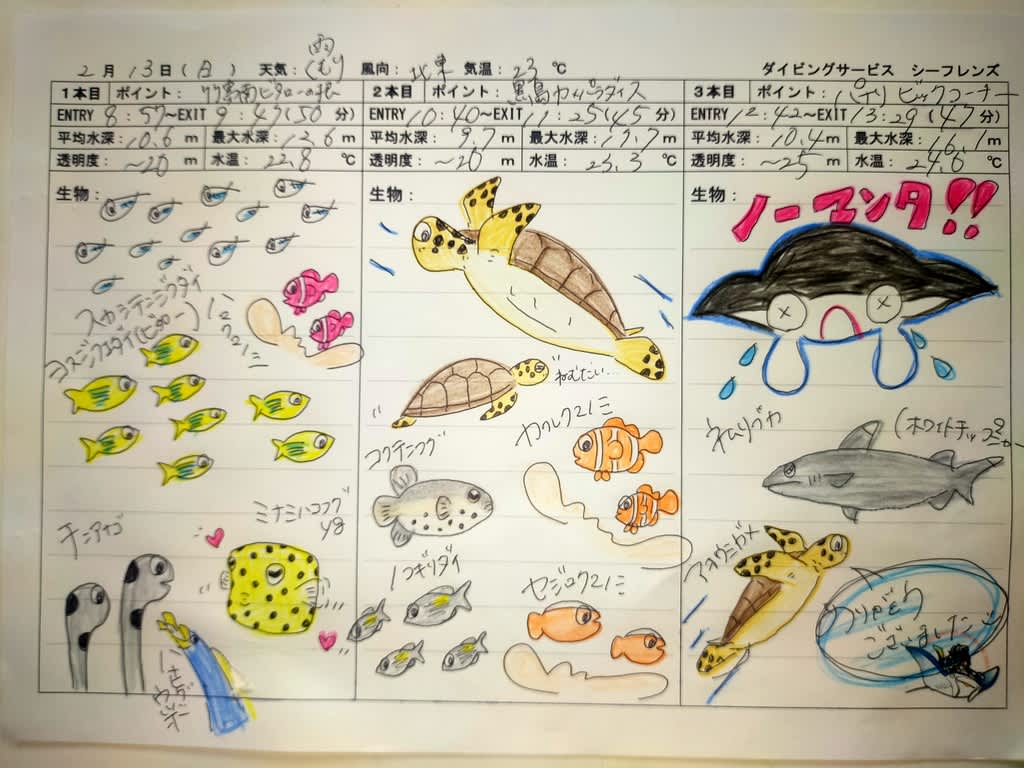 2月13日(日) 天気:雨 くもり 風向:北東 気温:23℃ ダイビングサービス シーフレンズ
1本目 ポイント:竹富南ビタローの根
ENTRY 8:57~EXIT 9:47(50分)
平均水深:10.6m 最大水深:12.6m
透明度:~20m 水温:22.8℃
生物:
スカシテンジクダイ
ヨスジフエダイ(ビタロー)
ハマクマノミ
ミナミハコフグ
yg
チンアナゴ
ハナヒゲウツボ
2本目 ポイント:黒島カメパラダイス
ENTRY 10:40~EXIT 11:25(45分)
平均水深:9.7m 最大水深:13.7m
透明度:~20m 水温:23.3℃
生物:
ねむたい…
カクレクマノミ
コクテンフグ
ノコギリダイ
セジロクマノミ
3本目 ポイント:パナリ ビックコーナー
ENTRY 12:42~EXIT 13:29(47分)
平均水深:10.4m 最大水深:16.1m
透明度:~25m 水温:24.6℃
生物:
ノーマンタ!!
ネムリブカ
(ホワイトチップ
アオウミガメ
ありがとう
ございました